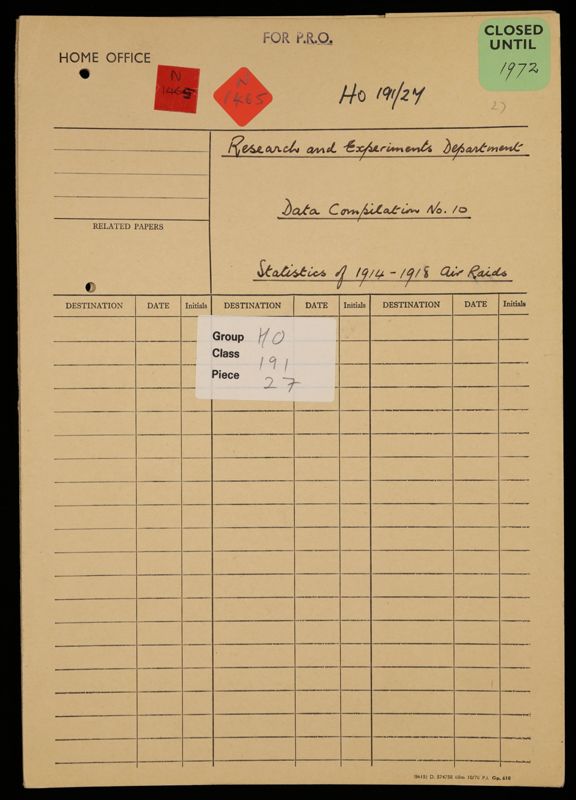 FOR P.R.O.
CLOSED
UNTIL
1972
HOME OFFICE
N
1465
N
1465
HO 191/27
27
Research and Experiments Department
Data Compilation No. 10
RELATED PAPERS
Statistics of 1914-1918 Air Raids
DESTINATION DATE Initials DESTINATION DATE Initials DESTINATION DATE Initials
Group HO
Class 191
Piece 27